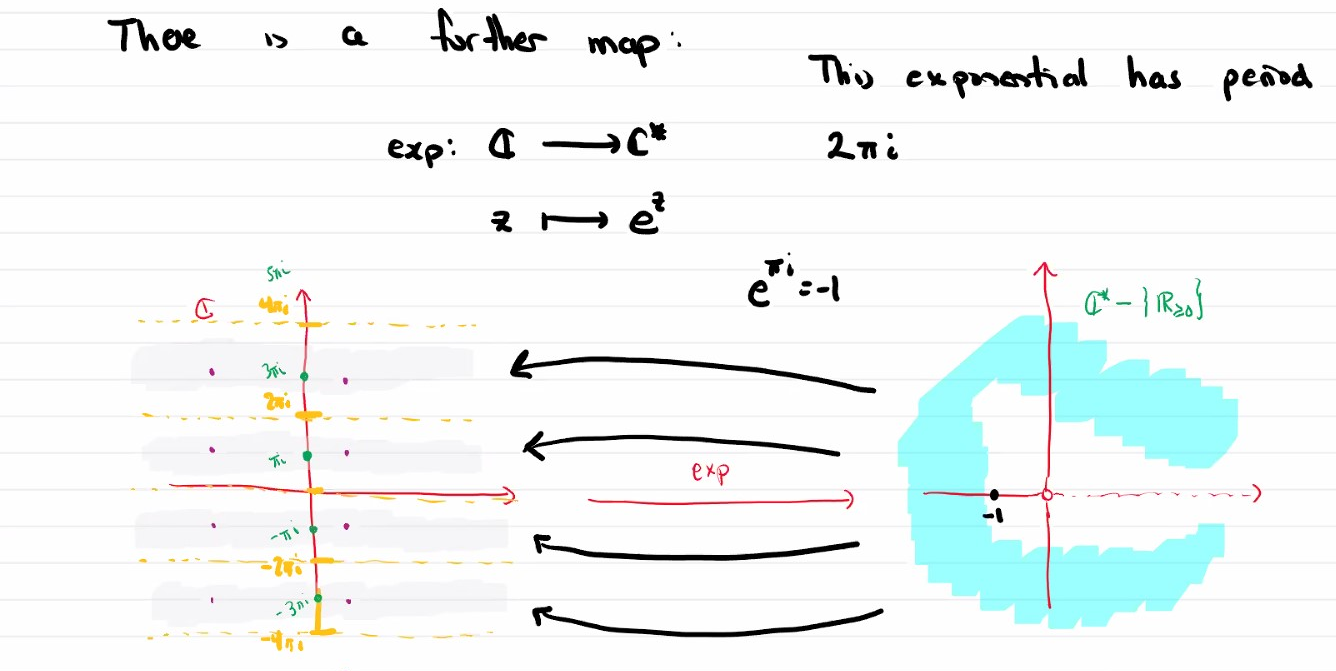 There is a further map:
This exponential has period
2πi
exp: ℂ ⟶ ℂ*
z ⟼ e^z
e^{πi} = -1
5πi
4πi
ℂ
ℂ* - {ℝ≥0}
3πi
2πi
πi
exp
-1
-πi
-2πi
-3πi
-4πi